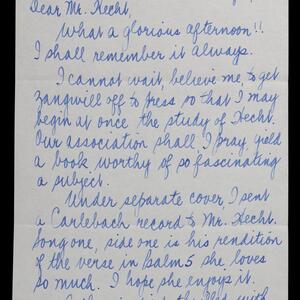 Dear Mr. Hecht,
What a glorious afternoon!!
I shall remember it always.
I cannot wait, believe me to get
Zangwill off to press so that I may
begin at once the study of Hecht.
Our association shall, I pray, yield
a book worthy of so fascinating
a subject.
Under separate cover, I sent
a Carlebach record to Mr. Hecht.
Song one, side one is his rendition
of the verse in Psalm 5 she loves
so much. I hope she enjoys it.